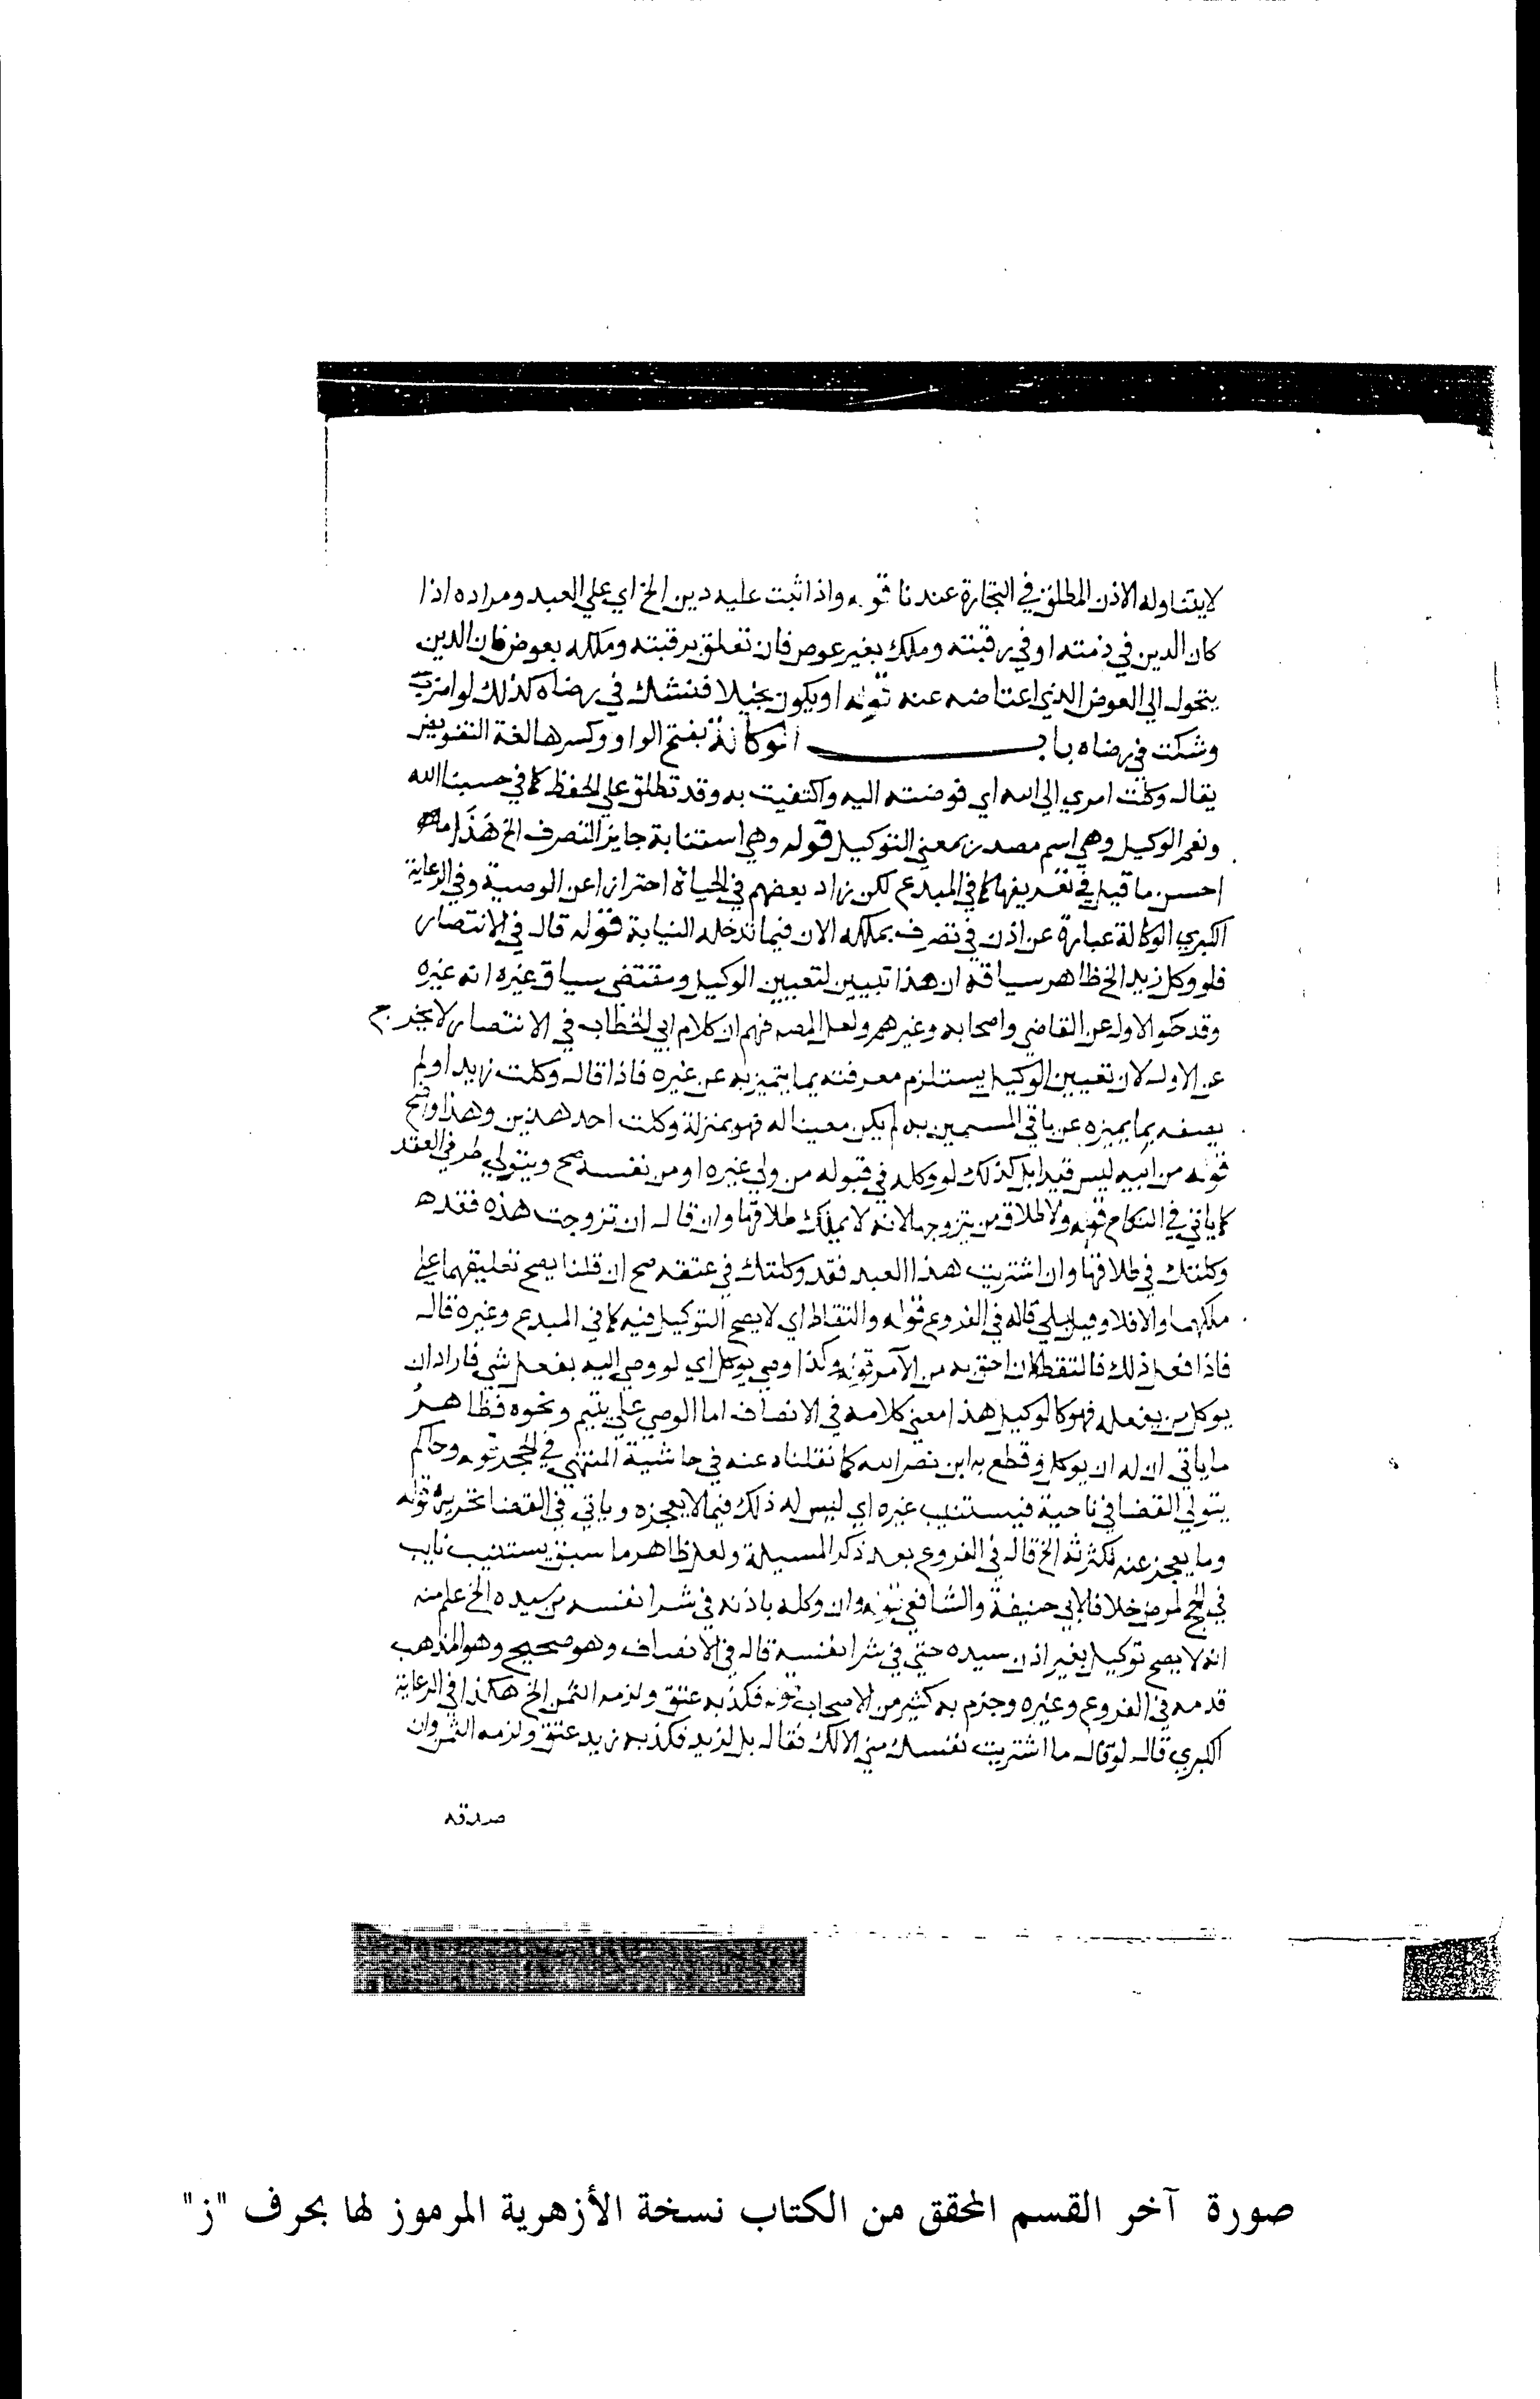 لا يتناوله الاذن المطلق في التجارة عندنا قوله واذا ثبت عليه دين الخ اي علي العبد ومراده اذا
كان الدين في ذمته او في رقبته وملك بغير عوض فان تعلق برقبته وملكه بعوض فان الدين
يتحول الي العوض الذي اعتاضه عنه قوله او يكون بخيلا فتشك في رضاه كذلك لو
وشكت في رضاه باب الوكالة بفتح الواو وكسرها لغة التفويض
يقال وكلت امري الي الله اي فوضته اليه واكتفيت به وقد تطلق علي الحفظ كما في حسبنا الله
ونعم الوكيل وهي اسم مصدر بمعني التوكيل قوله وهي استنابة جايز التصرف الخ هذا من
احسن ما قيل في تعريفها كما في المبدع لكن زاد بعضهم في الحياة احترازا عن الوصية وفي الرعاية
الكبري الوكالة عبارة عن اذن في تصرف يملكه الاذن فيما تدخله النيابة قوله قال في الانتصار
فلو وكل زيد الخ ظاهر سياقه ان هذا تبيين لتعيين الوكيل ومقتضي سياق غيره انه غيره
وقد حكوا الاول عن القاضي واصحابه وغيرهم ولعل المص فهم ان كلام ابي الخطاب في الانتصار لا يخرج
عن الاول لان تعيين الوكيل يستلزم معرفته بما يتميز به عن غيره فاذا قال وكلت زيدا ولم
يصفه بما يميزه عن باقي المسمين به لم يكن معينا له فهو بمنزلة وكلت احد هذين وهذا واضح
قوله من ابيه ليس قيدا بل كذلك لو وكله في قبوله من ولي غيره او من نفسه صح ويتولي طرفي العقد
كما ياتي في النكاح قوله ولا طلاق من يتزوجها لانه لا يملك طلاقها وان قال ان تزوجت هذه فقد
وكلتك في طلاقها وان اشتريت هذا العبد فقد وكلتك في عتقه صح ان قلنا يصح تعليقهما علي
ملكهما والا فلا وقيل بلي قاله في الفروع قوله والتقاط اي لا يصح التوكيل فيه كما في المبدع وغيره قال
فاذا فعل ذلك فالتقط كان احق به من الآمر قوله وكذا وصي يوكل اي لو وصي اليه بفعل شي فاراد ان
يوكل من يفعله فهو كالوكيل هذا معني كلامه في الانصاف اما الوصي علي يتيم ونحوه فظاهر
ما ياتي ان له ان يوكل وقطع به ابن نصر الله كما نقلناه عنه في حاشية المنتهي في الحجر قوله وحاكم
يتولي القضا في ناحية فيستنيب غيره اي ليس له ذلك فيما لا يعجزه وياتي في القضا تحريره قوله
وما يعجز عنه لكثرته الخ قال في الفروع بعد ذكر المسيلة ولعل ظاهر ما سبق يستنيب نايب
في الحج لمرض خلافا لابي حنيفة والشافعي قوله وان وكله باذنه في شرا نفسه من سيده الخ علم منه
انه لا يصح توكيل بغير اذن سيده حتي في شرا نفسه قال في الانصاف وهو صحيح وهو المذهب
قدمه في الفروع وغيره وجزم به كثير من الاصحاب قوله فكذبه عتق ولزمه الثمن الخ هكذا في الرعاية
الكبري قال لو قال ما اشتريت نفسك مني الا لك فقال بل لزيد فكذبه زيد عتق ولزمه الثمن وان
صدقه
صورة آخر القسم المحقق من الكتاب نسخة الأزهرية المرموز لها بحرف "ز"